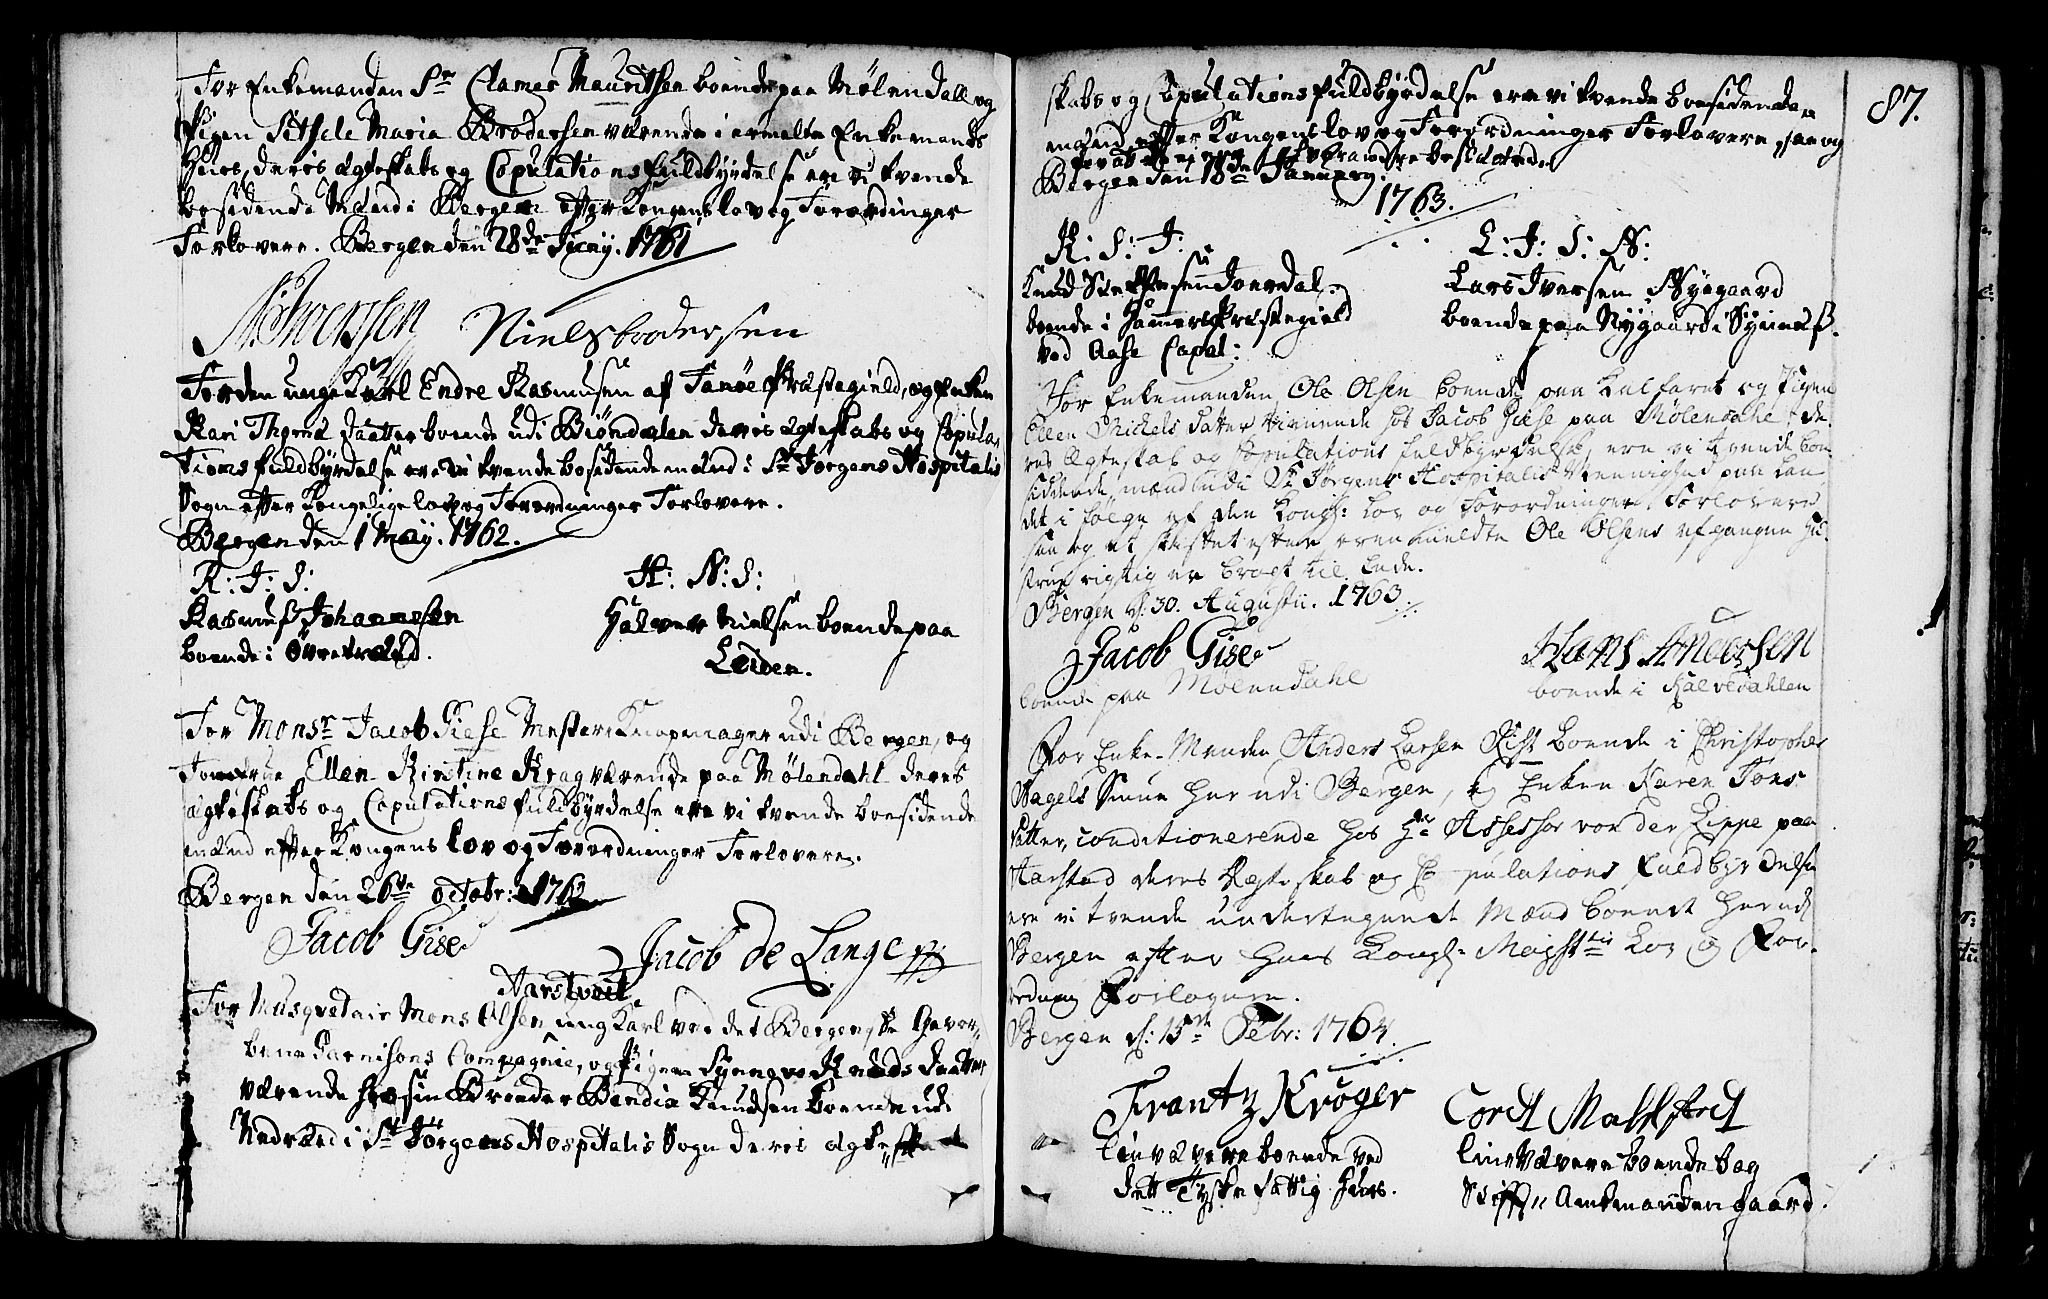 For Enkemanden Sr Clames Mauritsen boende paa Mølendall og
Pigen Sitsele Maria Brodersen værende i ermelte Enkemands
Huus, deris ægteskabs og Copulations fuldbyrdelse ere vi tvende
bosidende Mænd i Bergen efter Kongens lov og Forordinger
Forlovere. Bergen den 28de Juny. 1761
Niels brodersen
For den unge Karl Endre Rasmusen af Fanøe Præstegield, og Enken
Kari Thomæ daatter boende udi Biøndalen deris ægteskabs og Copula-
tions fuldbyrdelse ere vi tvende bosidende mænd i St Jørgens Hospitalis
Sogn efter Kongelige lov og Forordninger Forlovere.
Bergen den 1 May. 1762.
R: J: S:
H: N: S:
Rasmus Johannesen
boende i Øvretræed.
Halver Nielsen boende paa
Leiden.
For Monsr Jacob Giese Mester Knapmager udi Bergen, og
Jomfrue Ellen Kirstine Krag værende paa Mølendahl deres
ægteskabs og Copulations fuldbyrdelse ere vi tvende boesidende
mænd efter Kongens lov og Forordninger Forlovere.
Bergen den 26de octobr: 1762
Jacob Gise
Jacob de Lange
Aarstveit
For Musqvetair Mons Olsen ung Karl ved det Bergenske Gevor-
bene Garnisons Compagnie, og Pigen Synneve Knuds daatter
værende hos sin Broeder Bendix Knudsen boende udi
Nedræed i St Jørgens Hospitalis Sogn deres ægte-
87.
skabs og Copulations fuldbyrdelse ere vi tvende boesidende
mænd efter Kongens lov og Forordninger Forlovere, saa og
Bergen den 18de January.
1763.
K: S: J:
L: J: S: N:
Knud Joerdal.
boende i Hammers Præstegield
ved Aase Capel:
Lars Iversen Nygaard
boende paa Nygaard i Synnes.
For Enkemanden Ole Olsen boende paa Kalfaret og Pigen
Ellen Michels Datter tienende hos Jacob Giese paa Mølendahl, de-
res Ægteskab og Copulations fuldbyrdelse, ere vi tvende boe-
siddende mænd udi St Jørgens Hospitalis Meenighed paa Lan-
det i følge af den Kongl: Lov og Forordninger, Forlovere
saa og at skiftet efter ovenmeldte Ole Olsens afgangne Hu-
strue rigtig er bragt til Ende.
Bergen d: 30. Augustii. 1763
Jacob Gise
boende paa Mølendahl
Hans Andersen
boende i Kalvedahlen
For Enke-Manden Anders Larsen Rist boende i Christopher
Nagels Smue her udi Bergen, og Enken Karen Tons
Datter, conditionerende hos Hr Assessor von der Lippe paa
Aarstad deres Ægteskab og Copulations Fuldbyrdelse
ere vi tvende undertegnede Mænd boende her udi
Bergen efter Hans Kongl: Mayestts Lov og For-
ordning Forlovere.
Bergen d: 13de Febr: 1764.
Frantz Krøger
Linvævere boende ved
dett Tyske fattig Huus.
Cordt Mahlstedt
Linevævere boende bag
Stifft Amtmandens gaard.